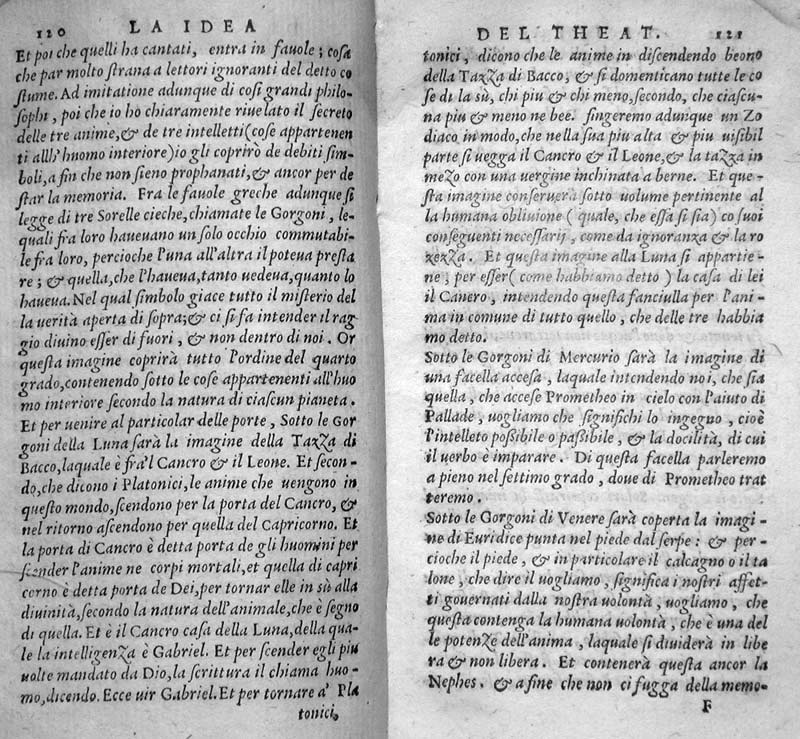 120 LA IDEA
Et poi che quelli ha cantati, entra in fauole; cosa
che par molto strana a lettori ignoranti del detto co
stume. Ad imitatione adunque di cosi grandi philo-
sophi, poi che io hò chiaramente riuelato il secreto
delle tre anime, & de tre intelletti (cose appartenen
ti all'huomo interiore) io gli coprirò de debiti sim-
boli, a fin che non sieno prophanati, & ancor per de
star la memoria. Fra le fauole greche adunque si
legge di tre Sorelle cieche, chiamate le Gorgoni, le-
quali fra loro haueuano un solo occhio commutabi-
le fra loro, percioche l'una all'altra il poteua presta
re; & quella, che l'haueua, tanto uedeua, quanto lo
haueua. Nel qual simbolo giace tutto il misterio del
la uerità aperta di sopra; & ci si fa intender il rag
gio diuino esser di fuori, & non dentro di noi. Or
questa imagine coprirà tutto l'ordine del quarto
grado, contenendo sotto le cose appartenenti all'huo
mo interiore secondo la natura di ciascun pianeta.
Et per uenire al particolar delle porte, Sotto le Gor
goni della Luna sarà la imagine della Tazza di
Bacco, laquale è fra'l Cancro & il Leone. Et secon-
do, che dicono i Platonici, le anime che uengono in
questo mondo, scendono per la porta del Cancro, &
nel ritorno ascendono per quella del Capricorno. Et
la porta di Cancro è detta porta de gli huomini per
scender l'anime ne corpi mortali, et quella di capri
corno è detta porta de Dei, per tornar elle in sù alla
diuinità, secondo la natura dell'animale, che è segno
di quella. Et è il Cancro casa della Luna, della qua-
le la intelligenza è Gabriel. Et per scender egli piu
uolte mandato da Dio, la scrittura il chiama huo-
mo, dicendo. Ecce uir Gabriel. Et per tornare a' Pla
tonici,
DEL THEAT. 121
tonici, dicono che le anime in discendendo beono
della Tazza di Bacco, & si domenticano tutte le co
se di la sù, chi piu & chi meno, secondo, che ciascu-
na piu & meno ne bee. fingeremo adunque un Zo
diaco in modo, che nella sua piu alta & piu uisibil
parte si uegga il Cancro & il Leone, & la tazza in
mezo con una uergine inchinata a berne. Et que-
sta imagine conseruerà sotto uolume pertinente al
la humana obliuione (quale, che essa si sia) co suoi
conseguenti necessarij, come da ignoranza & la ro
zezza. Et questa imagine alla Luna si appartie-
ne; per esser (come habbiamo detto) la casa di lei
il Canero, intendendo questa fanciulla per l'ani-
ma in comune di tutto quello, che delle tre habbia
mo detto.
Sotto le Gorgoni di Mercurio sarà la imagine di
una facella accesa, laquale intendendo noi, che sia
quella, che accese Prometheo in cielo con l'aiuto di
Pallade, uogliamo che significhi lo ingegno, cioè
l'intelleto possibile o passibile, & la docilità, di cui
il uerbo è imparare. Di questa facella parleremo
a pieno nel settimo grado, doue di Prometheo trat
teremo.
Sotto le Gorgoni di Venere sarà coperta la imagi-
ne di Euridice punta nel piede dal serpe: & per-
cioche il piede, & in particolare il calcagno o il ta
lone, che dire il uogliamo, significa i nostri affet-
ti gouernati dalla nostra uolontà, uogliamo, che
questa contenga la humana uolontà, che è una del
le potenze dell'anima, laquale si diuiderà in libe
ra & non libera. Et contenerà questa ancor la
Nephes. & a fine che non ci fugga della memo-
F